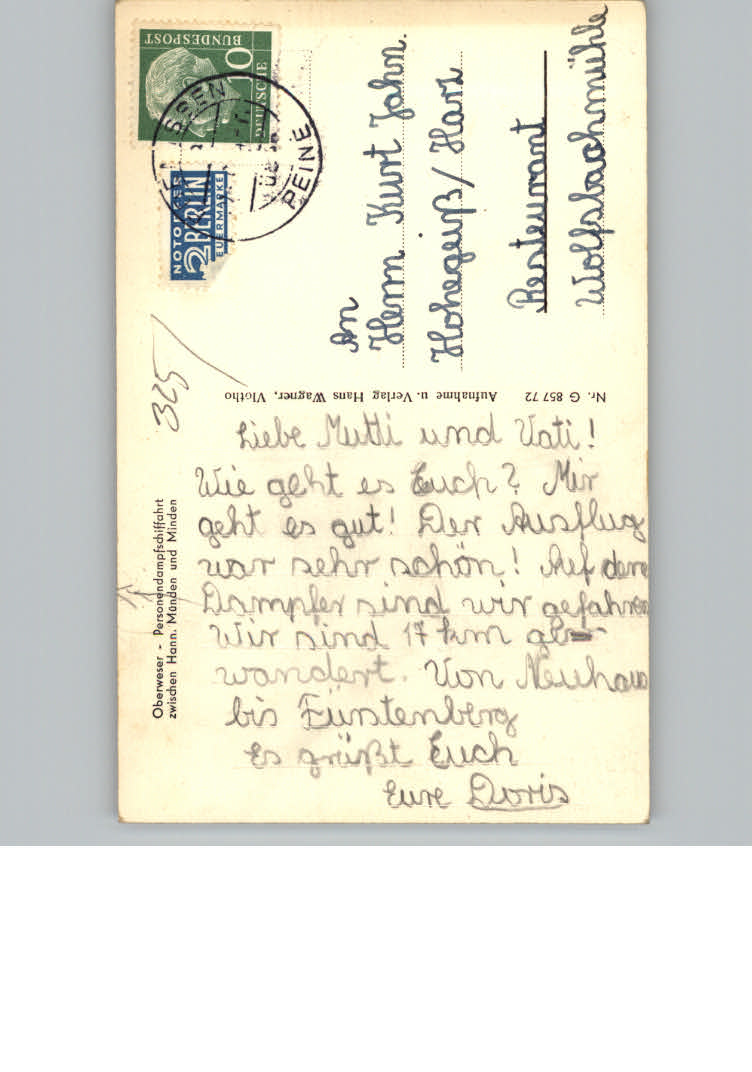 Oberweser - Personendampfschiffahrt
zwischen Hann. Münden und Minden
325
Liebe Mutti und Vati!
Wie geht es Euch? Mir
geht es gut! Der Ausflug
war sehr schön! Auf dem
Dampfer sind wir gefahren
Wir sind 17 km ge-
wandert. Von Neuhaus
bis Fürstenberg
Es grüßt Euch
Eure Doris
Nr. G 857 72 Aufnahme u. Verlag Hans Wagner, Vlotho
DEUTSCHE
BUNDESPOST
10
NOTOPFER
2 BERLIN
STEUERMARKE
PEINE
An
Herrn Kurt Jahn.
Hohegeiß/Harz
Resteurant
Wolfsbachmühle